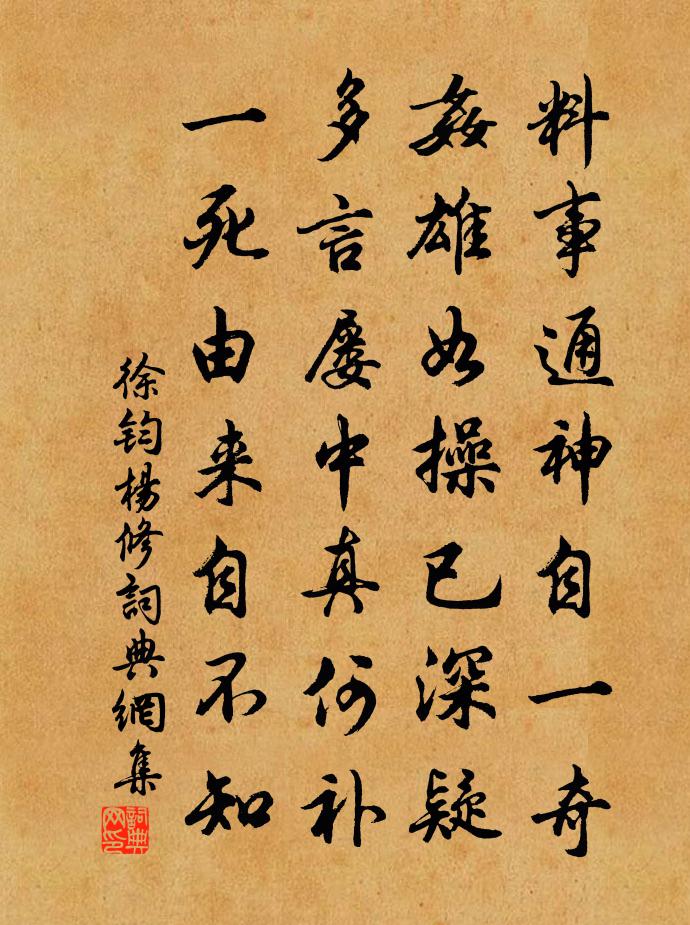 料事通神自一奇
姦雄如操已深疑
多言屡中真何补
一死由来自不知
徐鈞楊修詞典網集
詞典网印